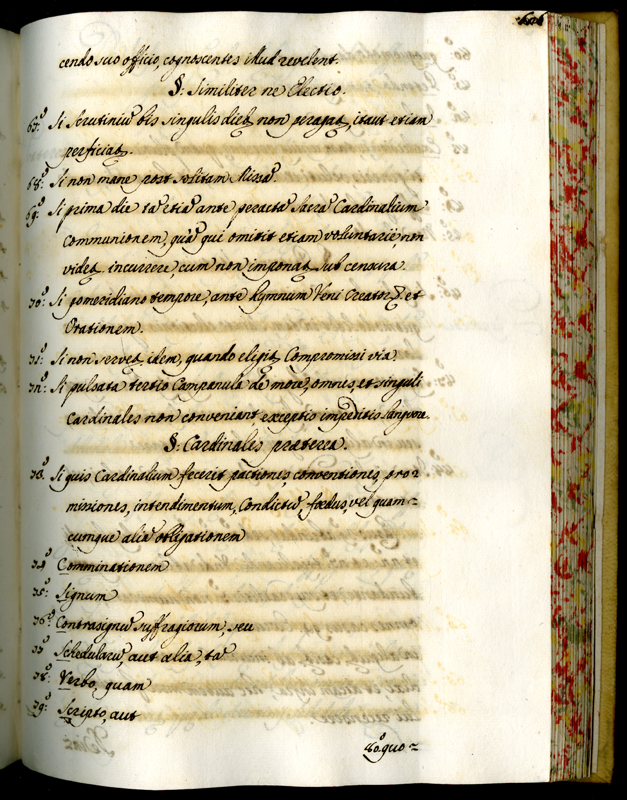 cendo suo officio, cognoscentes illud revelent.
§: Similiter ne Electio.
67º: Si Scrutiniũ bis singulis dieb; non peragat, itaut etiam
perficiat.
68º: Si non mane post solitam Missã.
69º: Si prima die tã etiã ante peractã Sacrã Cardinalium
Communionem, quã qui omittit etiam voluntariè, non
videt incurrere, cum non imponat sub censura.
70º: Si pomeridiano tempore, ante Hymnum Veni Creator et
Orationem.
71º: Si non servet idem, quando eligit Compromissi via.
72º: Si pulsata tertio Campanula de more, omnes, et singuli
Cardinales non conveniant, exceptis impeditis
§: Cardinales præterea.
73º: Si quis Cardinalium fecerit pactiones, conventiones, pro-
missiones, intendimentum, Condictũ, fœdus, vel quam-
cumque aliã obligationem
74º: Comminationem
75º: Signum
76º: Contrasignũ suffragiorum, seu
77º: Schedularũ, aut alia, tã
78º: Verbo, quam
79º: Scripto, aut
80º. quo-